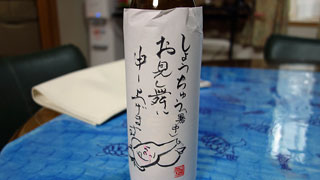 しょうちゅう(暑中)
お見舞い
申し上げます